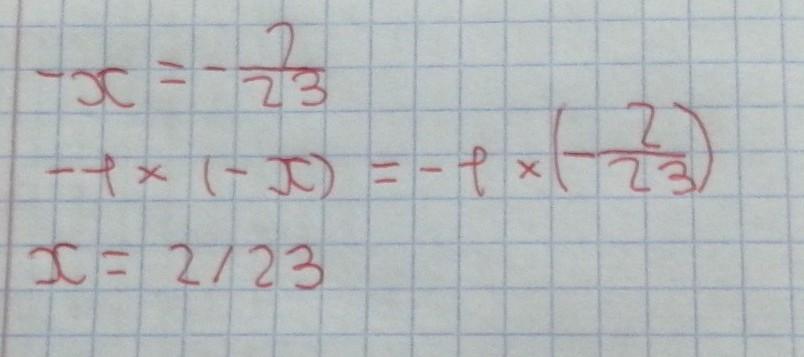 -x = -2/23
-1 × (-x) = -1 × (-2/23)
x = 2/23